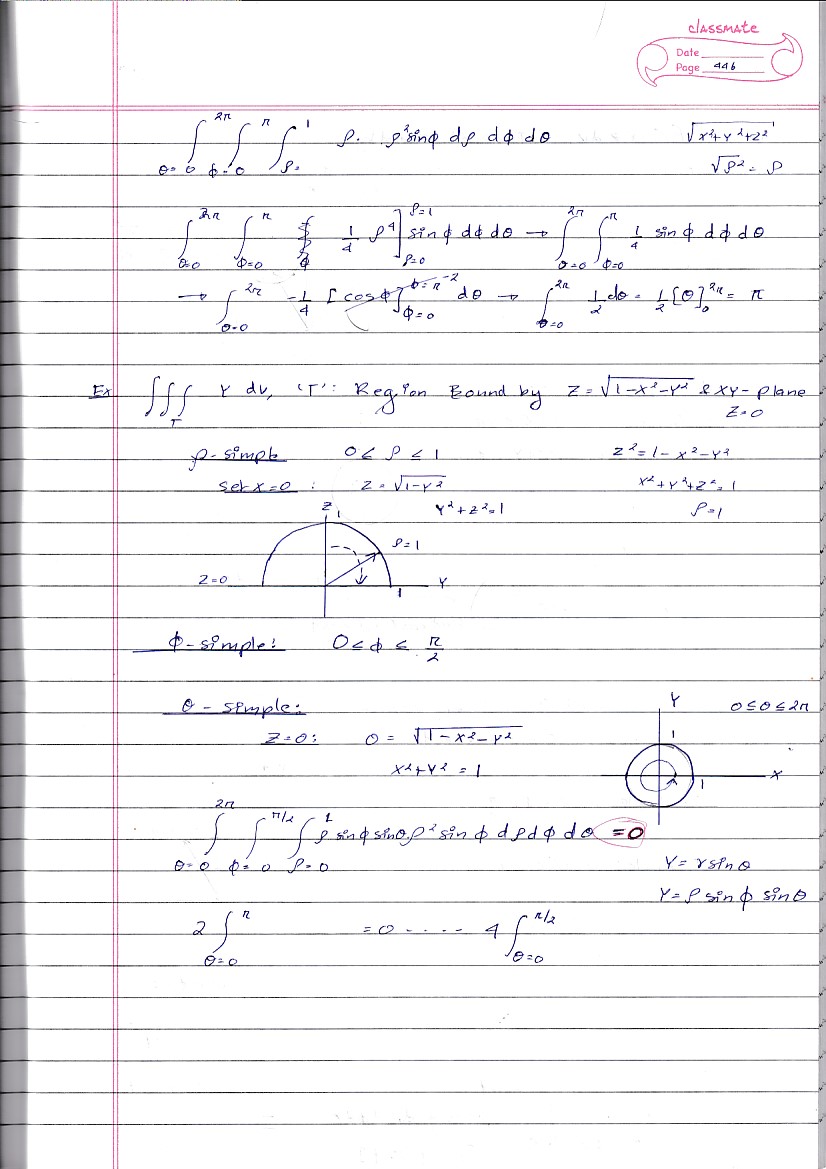 classmate
Date
Page 446
∫_{θ=0}^{2π} ∫_{φ=0}^{π} ∫_{ρ=}^{1} ρ. ρ²sinφ dρ dφ dθ √x²+y²+z²
√ρ² = ρ
∫_{θ=0}^{2π} ∫_{φ=0}^{π} 1/4 ρ⁴]_{ρ=0}^{ρ=1} sinφ dφ dθ → ∫_{θ=0}^{2π} ∫_{φ=0}^{π} 1/4 sinφ dφ dθ
→ ∫_{θ=0}^{2π} -1/4 [cosφ]_{φ=0}^{φ=π} -2 dθ → ∫_{θ=0}^{2π} 1/2 dθ = 1/2 [θ]_0^{2π} = π
Ex ∫∫∫_T Y dv, 'T': Region Bound by Z=√1-x²-y² & XY-plane
Z=0
ρ-simple 0≤ρ≤1 Z²=1-x²-y²
set x=0: Z=√1-y² x²+y²+z²=1
Y²+z²=1 ρ=1
Z
1
ρ=1
Z=0 Y
1
φ-simple: 0≤φ≤π/2
θ-simple: Y 0≤θ≤2π
Z=0: 0=√1-x²-y² 1
x²+y²=1 X
1
∫_{θ=0}^{2π} ∫_{φ=0}^{π/2} ∫_{ρ=0}^{1} ρ sinφ sinθ ρ² sinφ dρ dφ dθ =0
Y=r sinθ
Y=ρ sinφ sinθ
2 ∫_{θ=0}^{π} =0 ..... 4 ∫_{θ=0}^{π/2}